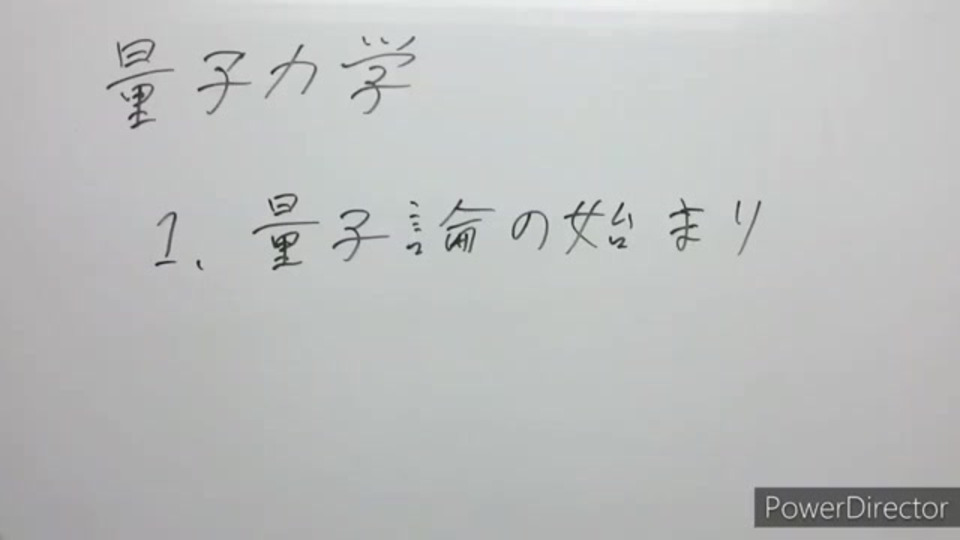 量子力学
1. 量子論の始まり
PowerDirector